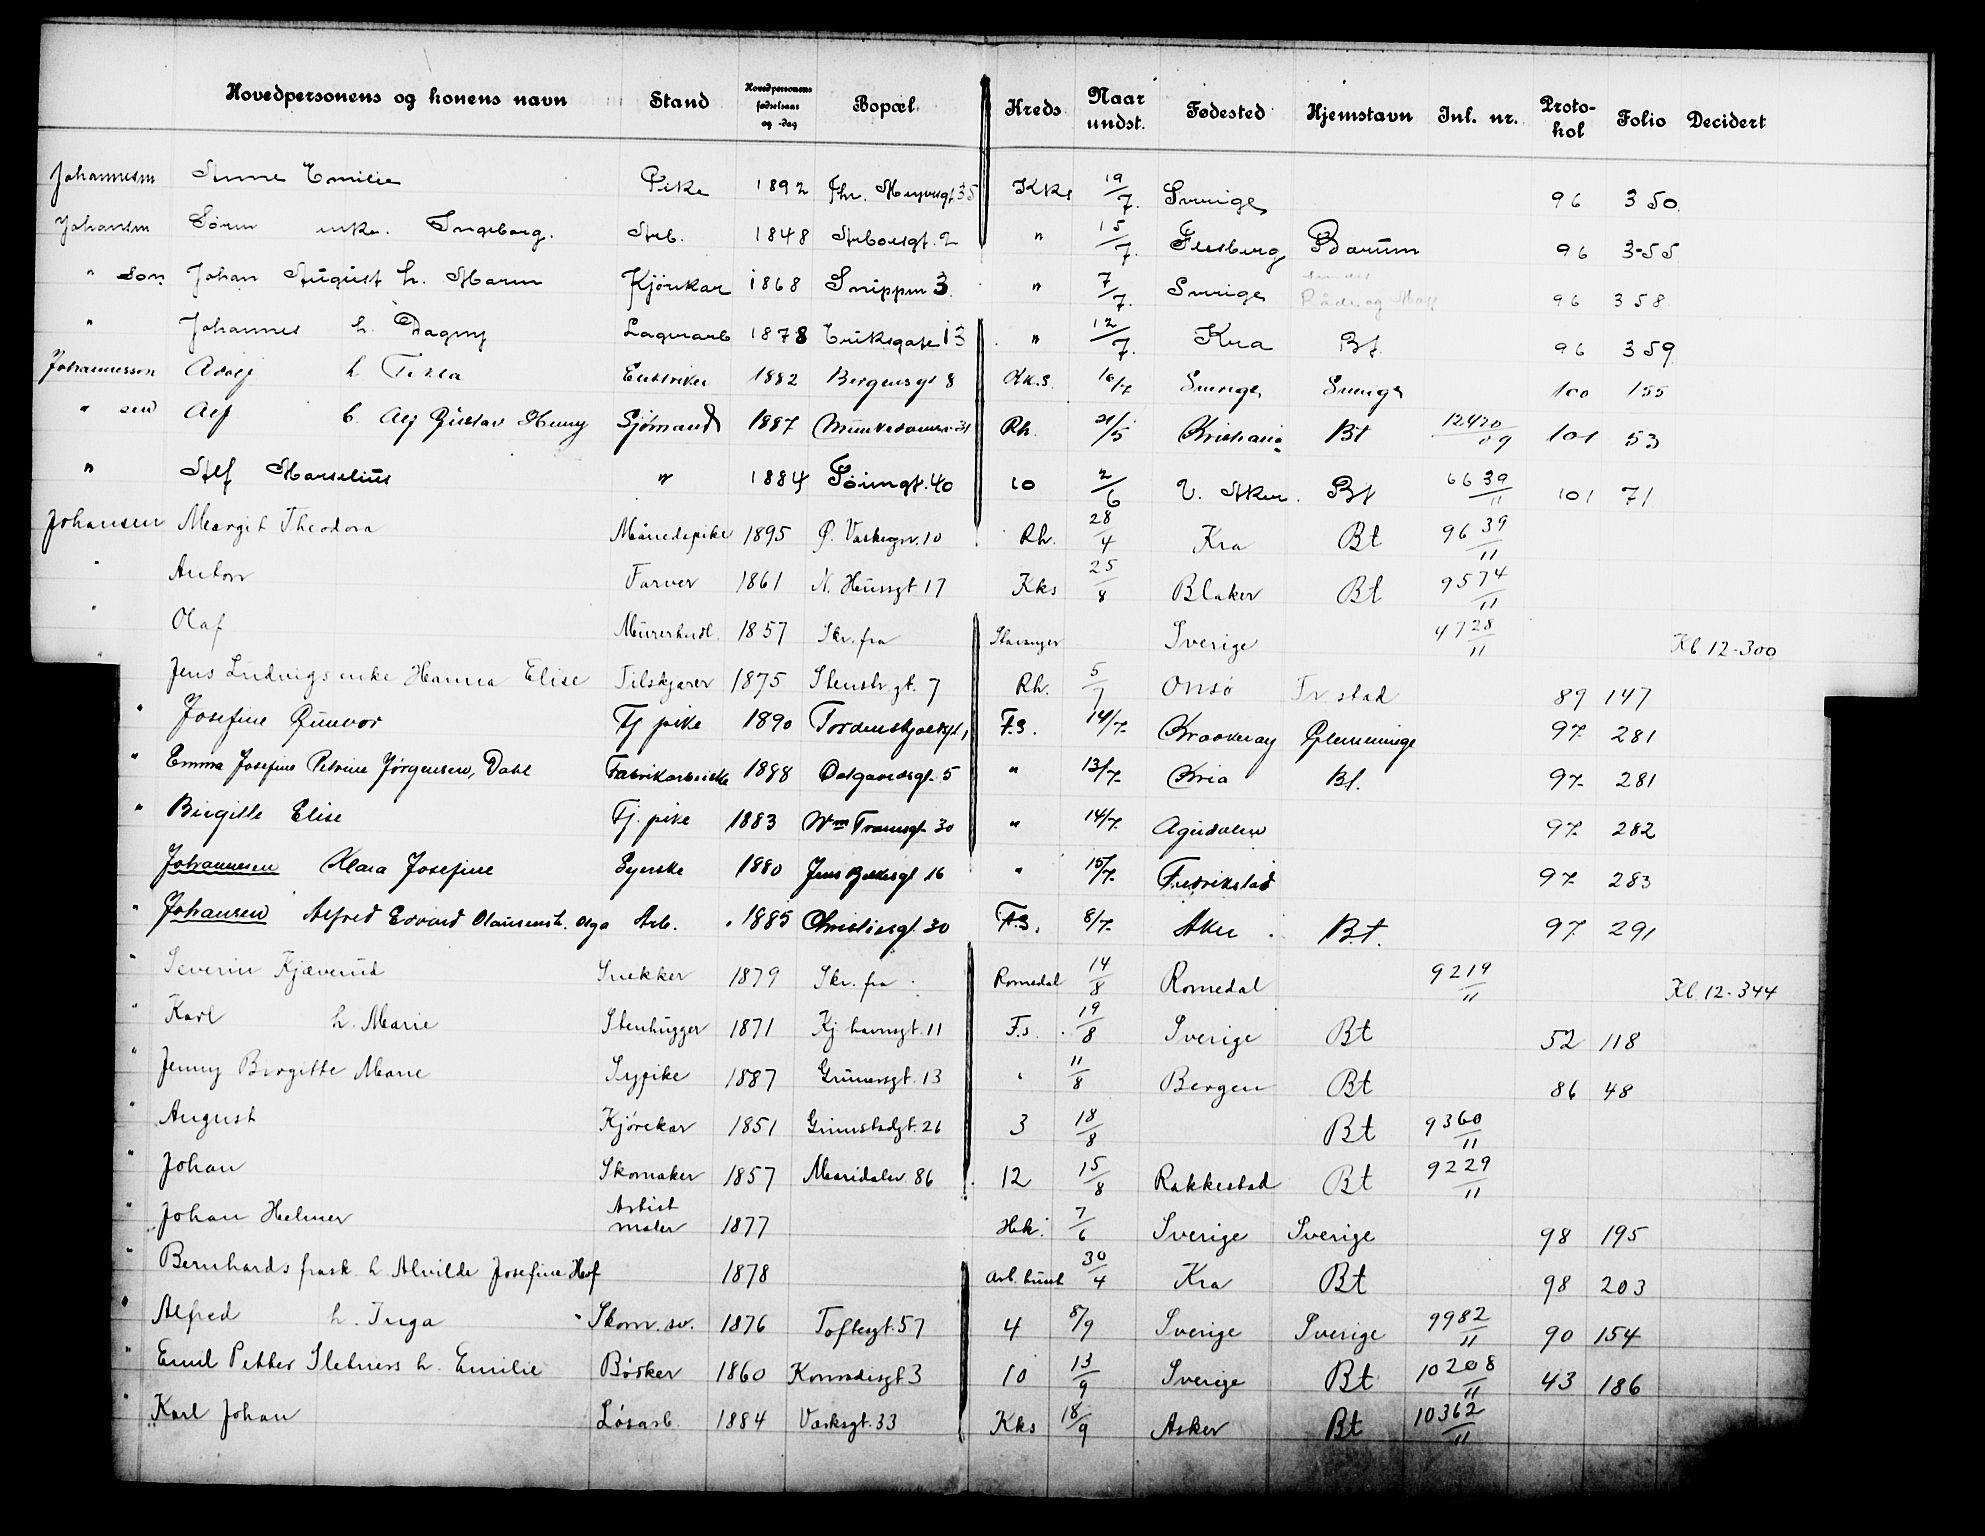 Hovedpersonens og konens navn Stand Hovedpersonens fødselsaar og -dag Bopæl. Kreds. Naar undst. Fødested Hjemstavn Inl. nr. Protokol Folio Decidert
Johannesen Emilie Pike 1892 35 Kks 19/7. Sverige 96 350.
Johansen Sören enke. Ingeborg. Arb. 1848 2 " 15/7. Bærum 96 355
" son Johan August h. Maren Kjörekar 1868 Snippen 3. " 7/7. Sverige Råde og Moss 96 358.
" Johannes h. Dagny Lagerarb 1878 Eriksgate 13 " 12/7. Kra Bt. 96 359
Johannesson Adolf h Tekla 1882 Bergensgt 8 Kks. 16/7 Sverige Sverige 100 155
" sen Alf Alf Gustav Henry Sjömand 1887 31 Rh. 21/5 Kristiania Bt 12470/09 101 53
" Alf Marselius " 1884 40 10 2/6 V. Aker. Bt 6639/11 101 71
Johansen Margit Theodora Månedspike 1895 10 Rh. 28/4 Kra Bt 9639/11
" Anton Farver 1861 N. Hussgt 17 Kks 25/8 Blaker Bt 9574/11
" Olaf Murerhdl. 1857 Skr. fra Stavanger Sverige 4728/11 Kl. 12-300
" Jens Ludvigs enke Hanna Elise Tilskjærer 1875 Stenstr gt. 7 Rh. 5/7 Onsö Fr.stad 89 147
" Josefine Gunvor Tj pike 1890 Tordenskjoldsgt 1 F.S. 14/7. Kraakeröy Glemminge 97. 281
" Emma Josefine Petrine Jørgensen, Dahl Fabrikarbeiderske 1888 5 " 13/7. Kria Bt. 97. 281
" Birgitte Elise Tj. pike 1883 30 " 14/7. Agudalen 97. 282
Johannesen Klara Josefine Syerske 1880 Jens Bjelkesgt 16 " 15/7. Fredrikstad 97. 283
" Johansen Alfred Edvard Clausensh. Olga Arb. 1885 Christiesgt. 30 F.S. 8/7. Aker. B.t. 97. 291
" Severin Kjæverud Snekker 1879 Skr. fra Romedal 14/8 Romedal 9219/11 Kl. 12-344
" Karl h. Marie Stenhugger 1871 Kj havnsgt. 11 F.s. 19/8 Sverige Bt 52 118
" Jenny Birgitte Marie Sypike 1887 Grünersgt. 13 " 11/8 Bergen Bt 86 48
" August Kjörekar 1851 Grimstadgt. 26 3 18/8 Bt 9360/11
" Johan Skomaker 1857 Maridalsv. 86 12 15/8 Rakkestad Bt 9229/11
" Johan Helmer Artist maler 1877 Hek. 7/6 Sverige Sverige 98 195
" Bernhards frask. h Alvilde Josefine Hof 1878 Arb. hush 30/4 Kra Bt 98 203
" Alfred h. Inga " Skom. sv. 1876 Toftesgt. 57 4 8/9 Sverige Sverige 9982/11 90 154
" Emil Petter Sletners h. Emilie Bödker 1860 Konradisgt 3 10 13/9 Sverige Bt 10208/11 43 186
" Karl Johan Løsarb. 1884 Verksgt. 33 Kks 18/9 Asker Bt 10362/11